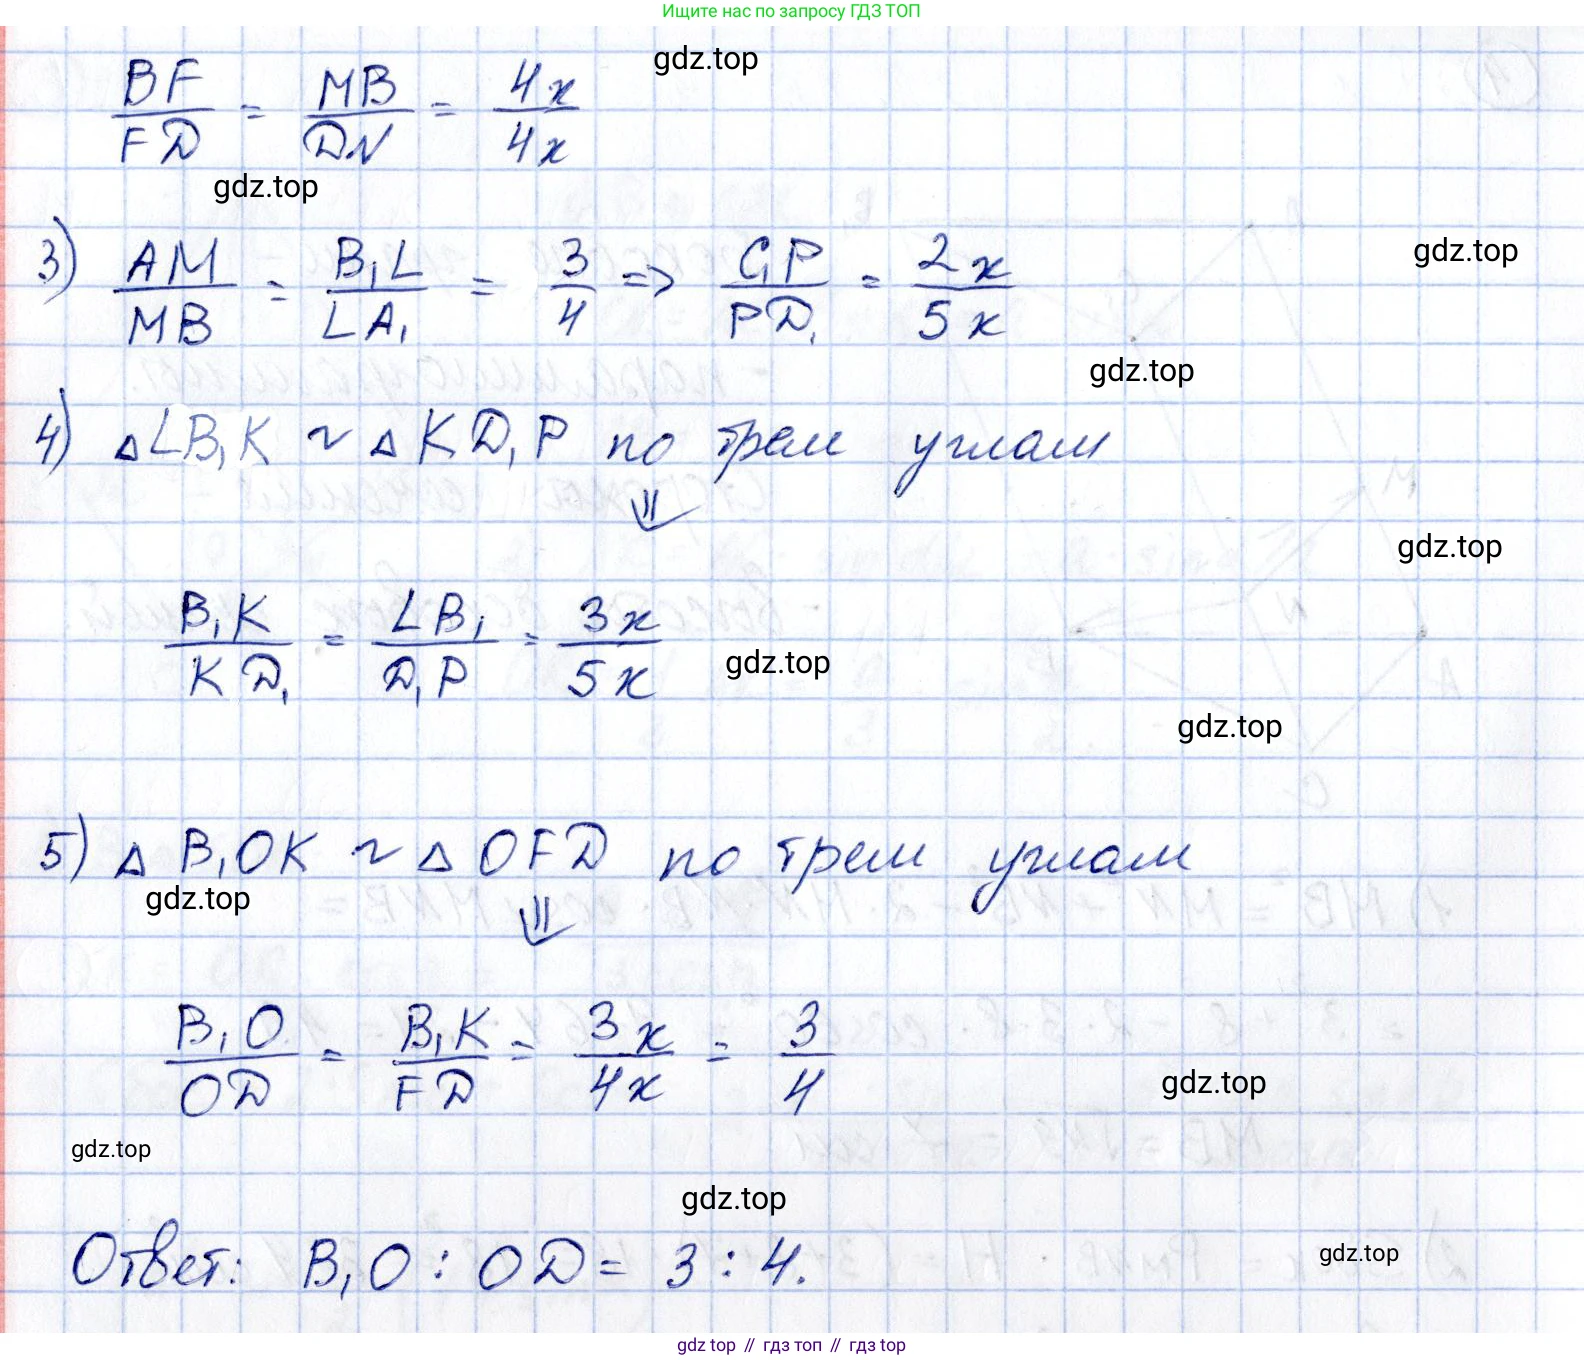 Ищите нас по запросу ГДЗ ТОП
BF/FD = MB/DN = 4x/4x
gdz.top
gdz.top
3) AM/MB = B₁L/LA₁ = 3/4 => C₁P/PD₁ = 2x/5x
gdz.top
gdz.top
4) △LB₁K ~ △KD₁P по трем углам
⇓
gdz.top
B₁K/KD₁ = LB₁/D₁P = 3x/5x
gdz.top
gdz.top
5) △B₁OK ~ △OFD по трем углам
gdz.top
⇓
B₁O/OD = B₁K/FD = 3x/4x = 3/4
gdz.top
gdz.top
gdz.top
Ответ: B₁O : OD = 3 : 4.
gdz.top
gdz top // гдз топ // gdz top